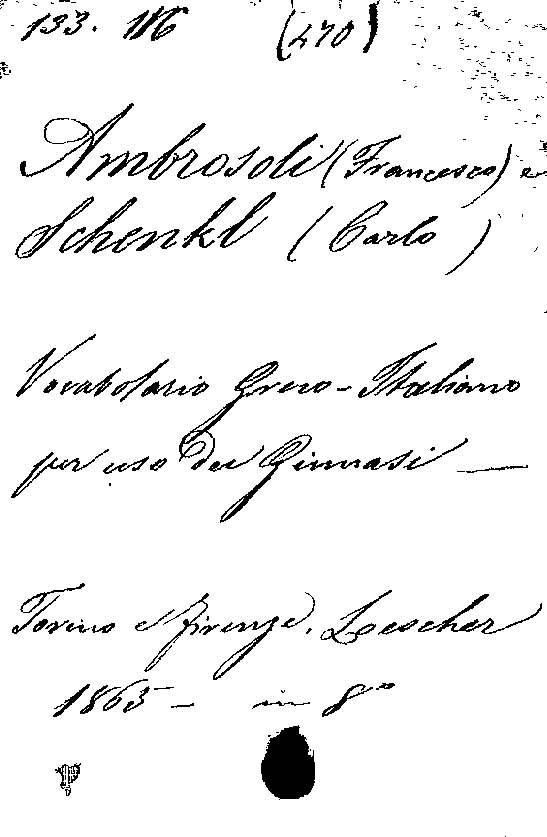 133. 116 (270)
Ambrosoli (Francesco) e
Schenkl (Carlo)
Vocabolario Greco-Italiano
per uso dei Ginnasi —
Torino e Firenze. Loescher
1865 — in 8º